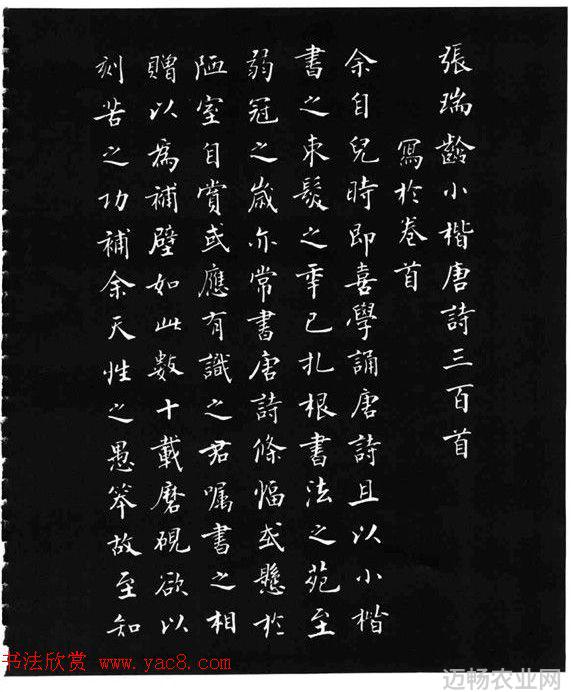 張瑞齡小楷唐詩三百首
寫於卷首
余自兒時即喜學誦唐詩且以小楷
書之束髮之年已扎根書法之苑至
弱冠之歲亦常書唐詩條幅或懸於
陋室自賞或應有識之君囑書之相
贈以為補壁如此數十載磨硯欲以
刻苦之功補余天性之愚笨故至知
书法欣赏 www.yac8.com
迈畅农业网